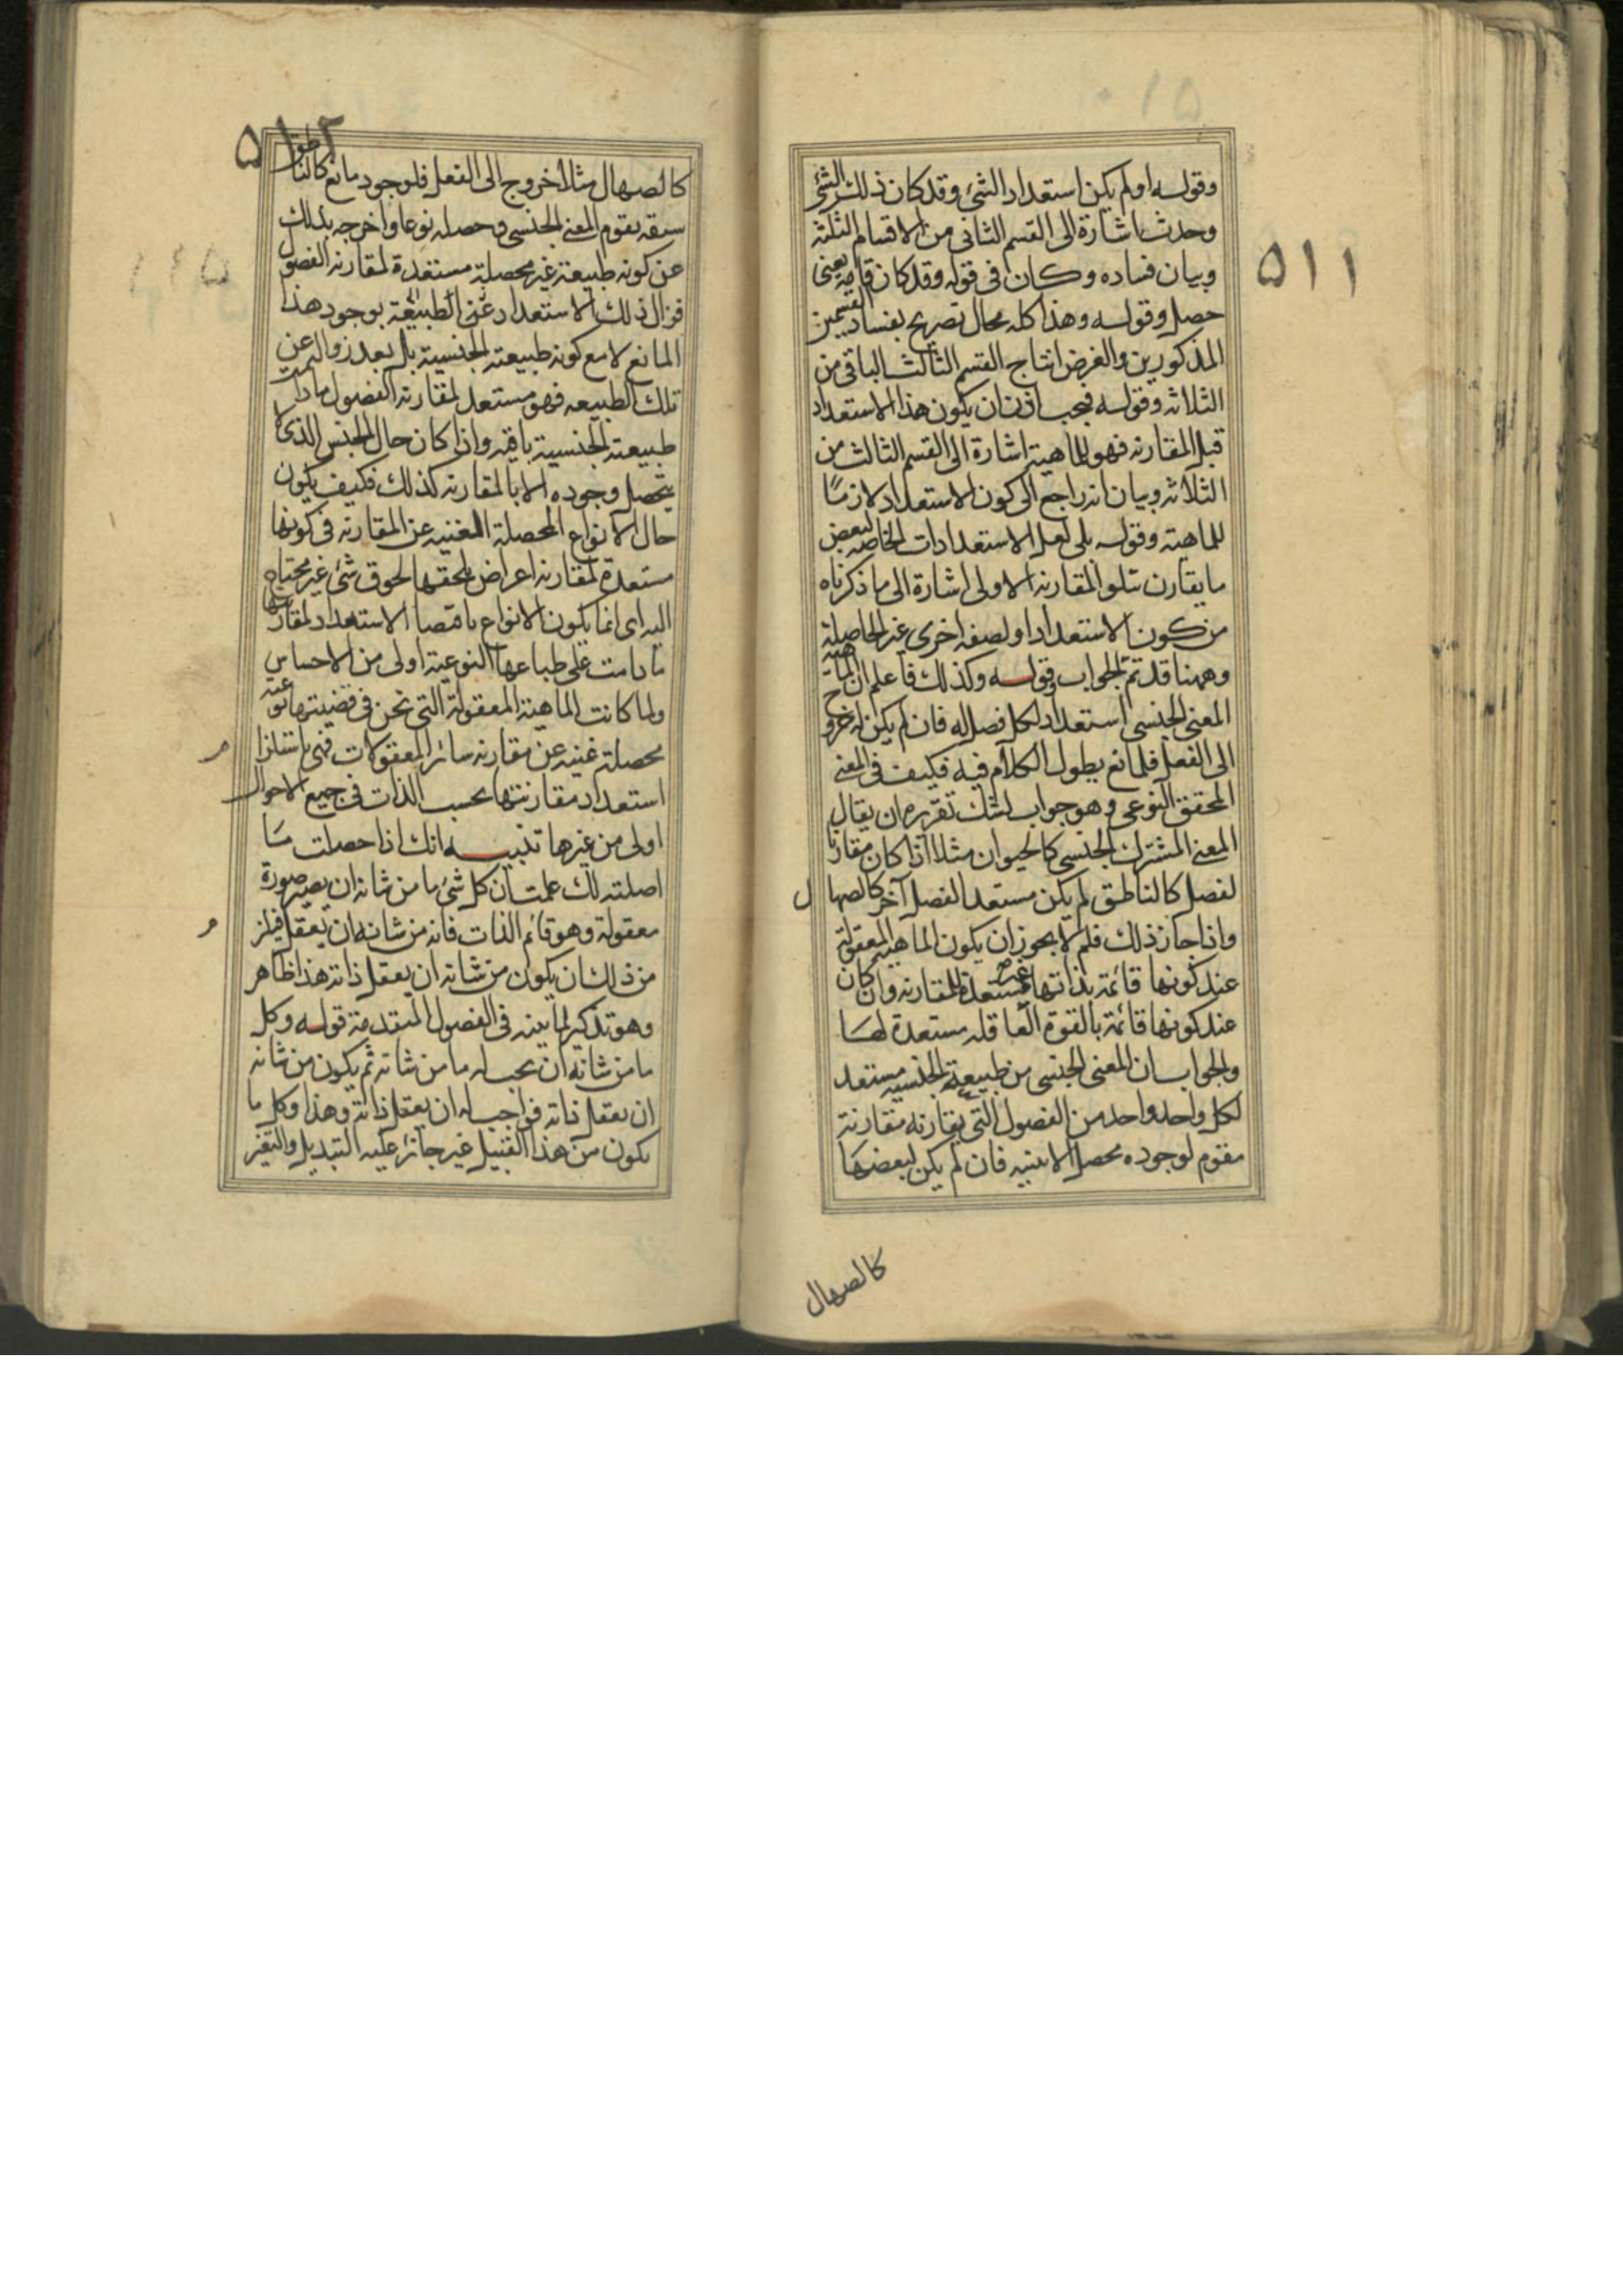 ٥١١
وقوله اولم يكن استعداد الشئ وقد كان ذلك الشئ
وحدث اشارة الى القسم الثانى من الاقسام الثلثة
وبيان فساده وكان فى قوله وقد كان تامة يعنى
حصل وقوله وهذا كله محال تصريح بفساد القسمين
المذكورين والغرض انتاج القسم الثالث الباقى من
الثلاثه وقوله فيجب اذن ان يكون هذا الاستعداد
قبل المقارنه فهو للماهية اشارة الى القسم الثالث من
الثلاثه وبيان انه راجع الى كون الاستعداد لازمًا
للماهية وقوله بلى لعل الاستعدادات الخاصه لبعض
ما يقارن تتلو المقارنة الاولى اشارة الى ما ذكرناه
من كون الاستعداد او لصفه اخرى غير الحاصلة
وههنا قد تم الجواب وقوله وكذلك فاعلم ان الماهيه
المعنى الجنسى استعداد لكل فصل له فان لم يكن له خروج
الى الفعل فلمانع يطول الكلام فيه فكيف فى المعنى
المحقق النوعى وهو جواب لشك تقريره ان يقال
المعنى المشترك الجنسى كالحيوان مثلا اذا كان مقارنا
لفصل كالناطق لم يكن مستعدا لفصل آخر كالصهال
واذا جاز ذلك فلم لا يجوز ان يكون الماهية المعقولة
عند كونها قائمة بذاتها غير مستعدة للمقارنه وان كان
عند كونها قائمة بالقوة العاقله مستعدة لها
والجواب ان المعنى الجنسى من طبيعة الجنسيه مستعد
لكل واحد واحد من الفصول التى يقارنه مقارنة
مقوم لوجوده محصل لانيته فان لم يكن لبعضها
كالصهال
٥١٢
كالصهال مثلا خروج الى الفعل فلوجود مانع كالناطق
سبقه يقوم المعنى الجنسى وحصله نوعا واخرجه بذلك
عن كونه طبيعة غير محصلة مستعدة لمقارنه الفصول
فزال ذلك الاستعداد عن الطبيعة بوجود هذا
المانع لا مع كونه طبيعة الجنسية بل بعد زواله عن
تلك الطبيعه فهو مستعد لمقارنه الفصول مادام
طبيعته الجنسية باقيه واذا كان حال الجنس الذى لا
يتحصل وجوده الا بالمقارنه كذلك فكيف يكون
حال الانواع المحصلة الغنيه عن المقارنه فى كونها
مستعدة لمقارنه اعراض يلحقها لحوق شئ غير محتاج
اليه اى انما يكون الانواع باقتضا الاستعداد لمقارنتها
مادامت على طباعها النوعية اولى من الاجناس
ولما كانت الماهية المعقولة التى نحن فى قضيتها نوعيه
محصلة غنيه عن مقارنه سائر المعقولات فهى باستلزام
استعداد مقارنتها بحسب الذات فى جميع الاحوال
اولى من غيرها تنبيه انك اذا حصلت ما
اصلته لك علمت ان كل شئ ما من شانه ان يصير صورة
معقولة وهو قائم الذات فانه من شانه ان يعقل فيلزم
من ذلك ان يكون من شانه ان يعقل ذاته هذا ظاهر
وهو تذكير لما بينه فى الفصول المتقدمة قوله وكل
ما من شانه ان يجب له ما من شانه ثم يكون من شانه
ان يعقل ذاته فواجب له ان يعقل ذاته وهذا وكل ما
يكون من هذا القبيل غير جائز عليه التبديل والتغير